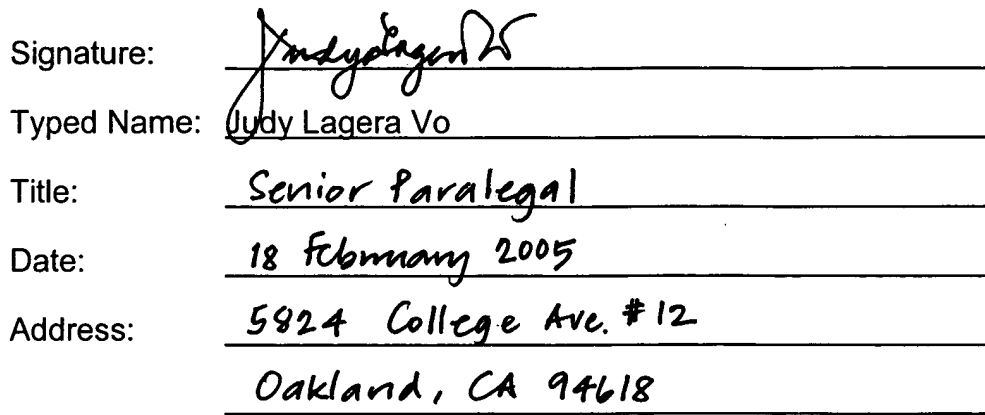 Signature: Judy Lagera Vo
Typed Name: Judy Lagera Vo
Title: Senior Paralegal
Date: 18 February 2005
Address: 5824 College Ave. #12
Oakland, CA 94618